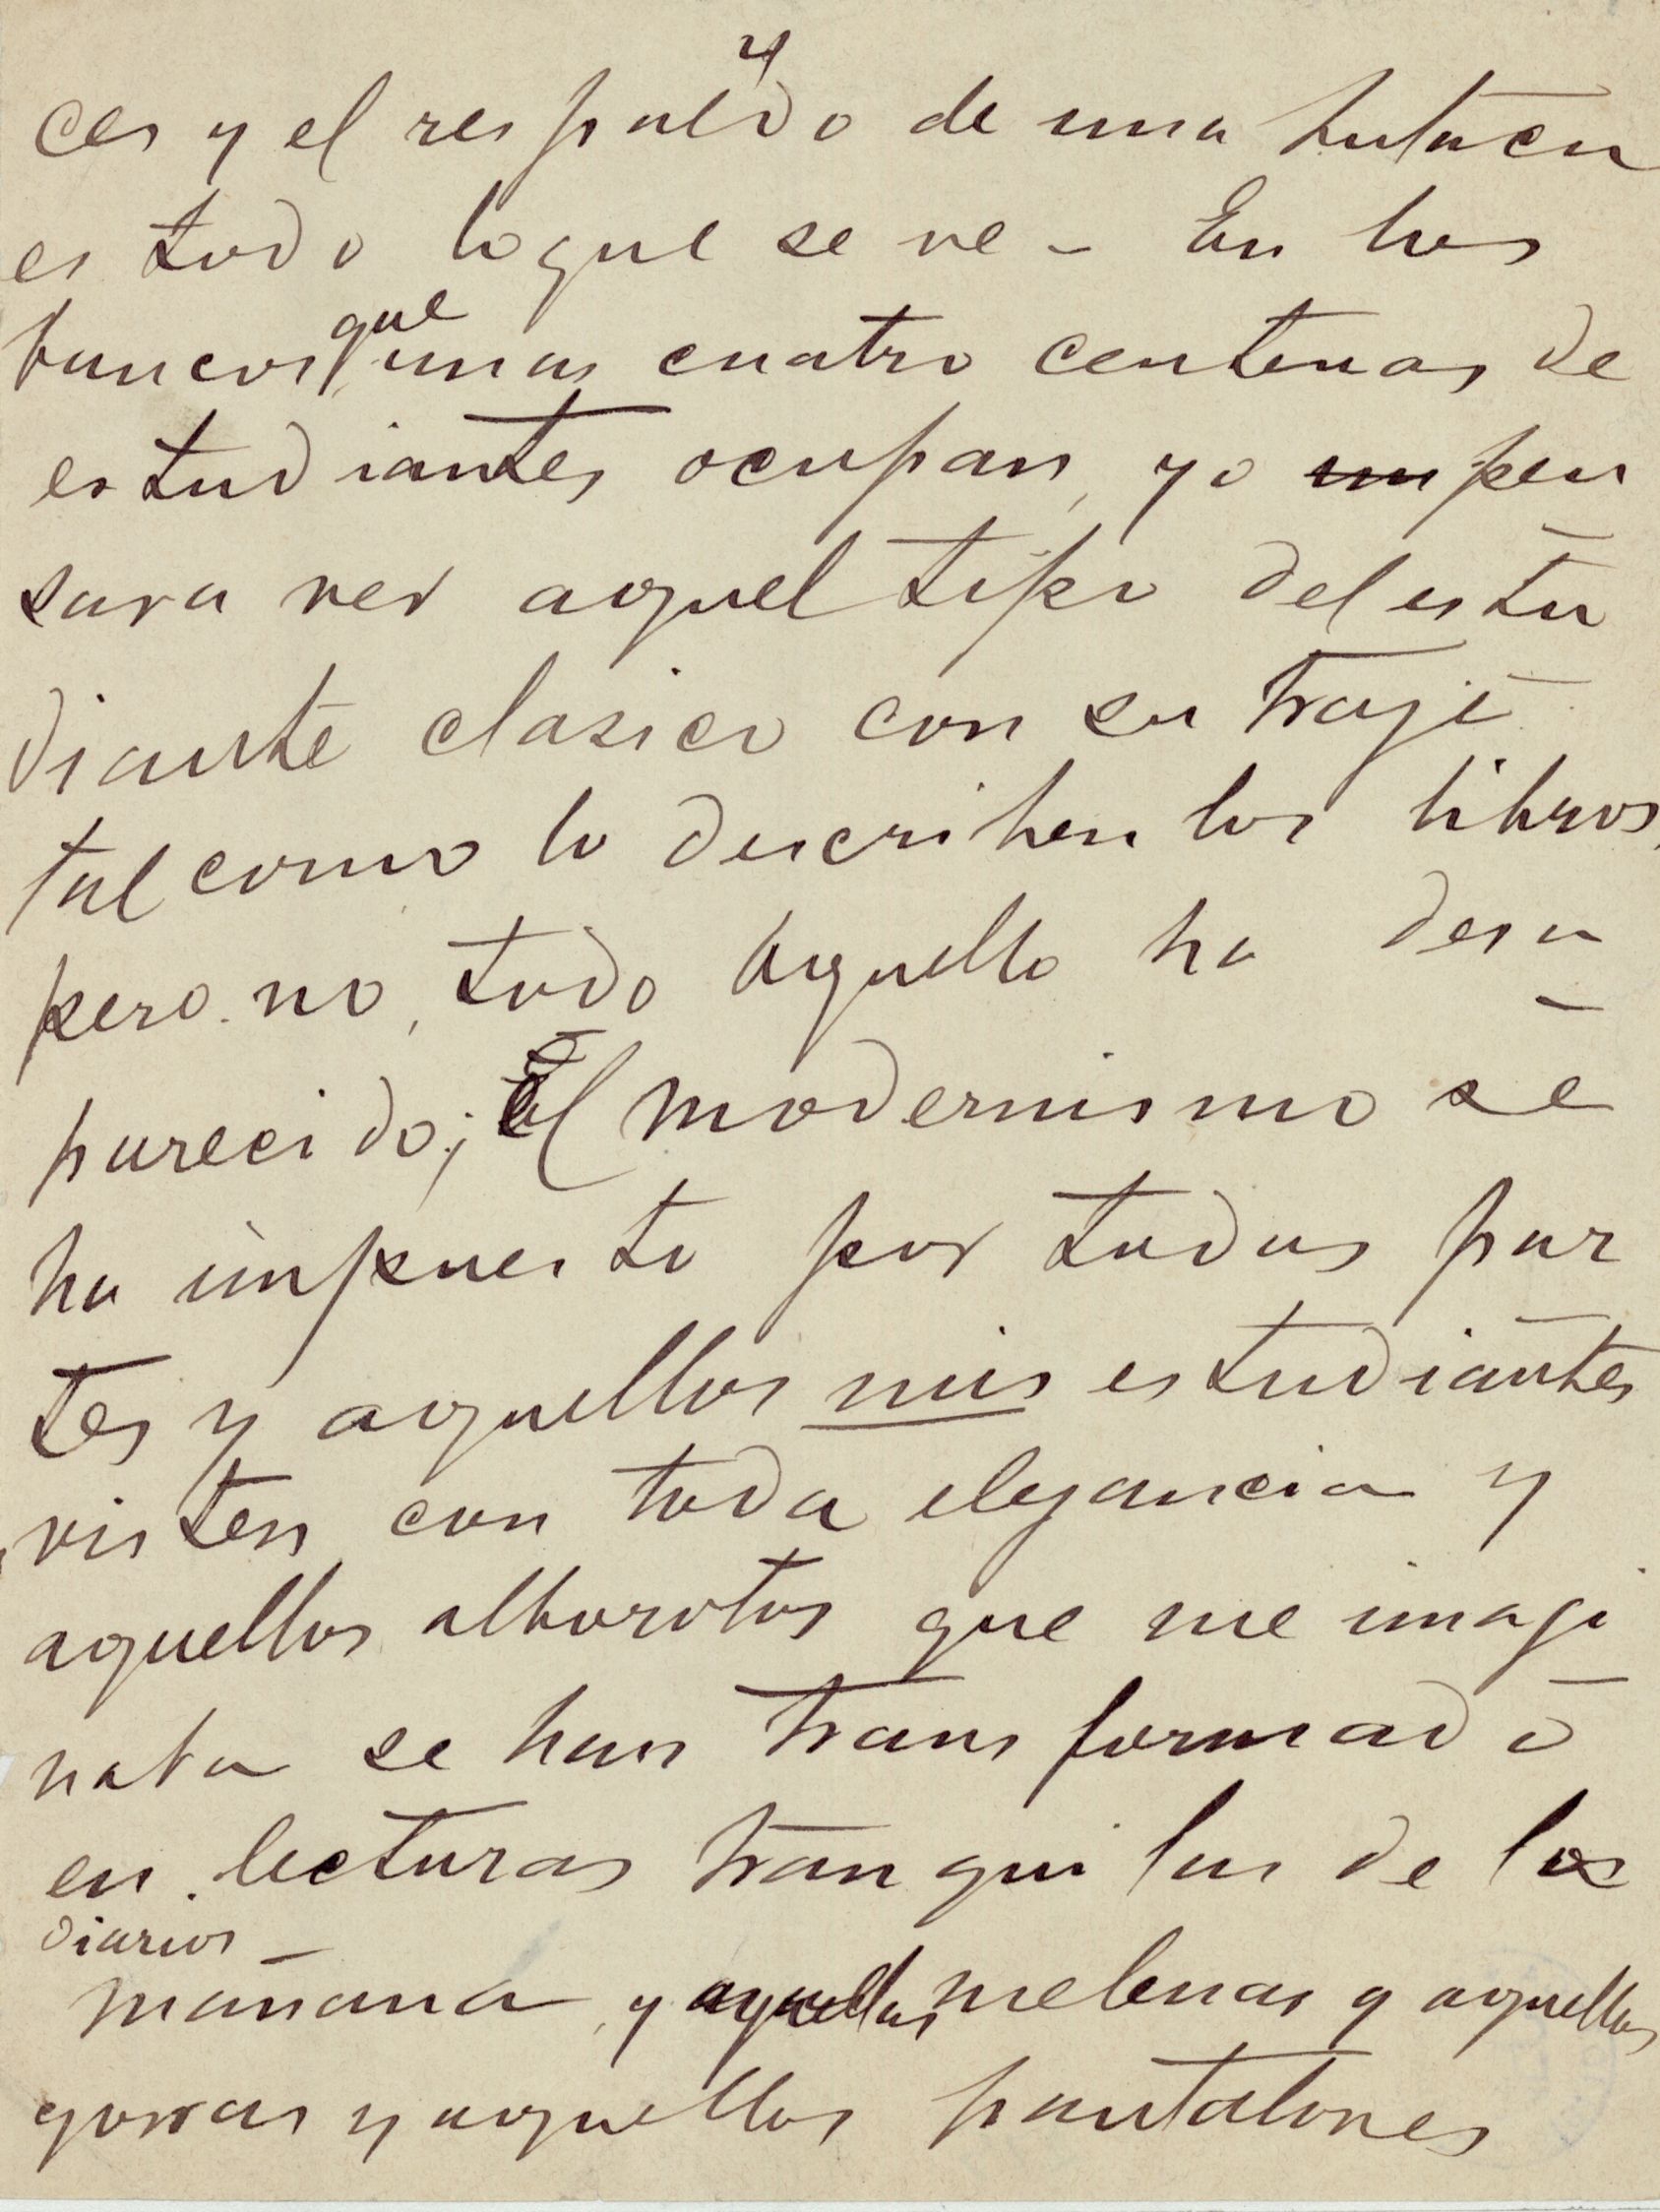 4
ces y el respaldo de una butaca
es todo lo que se ve – En los
bancos que unas cuatro centenas de
estudiantes ocupan, yo un pen
sara ver aquel tipo del estu
diante clasico con su traje
tal como lo describen los libros,
pero no, todo aquello ha desa
parecido; El modernismo se
ha impuesto por todas par
tes y aquellos mis estudiantes
visten con toda elegancia y
aquellos alborotos que me imagi
naba se han transformado
en lecturas tranquilas de los
diarios –
mañana, y aquellas melenas y aquellas
gorras y aquellos pantalones